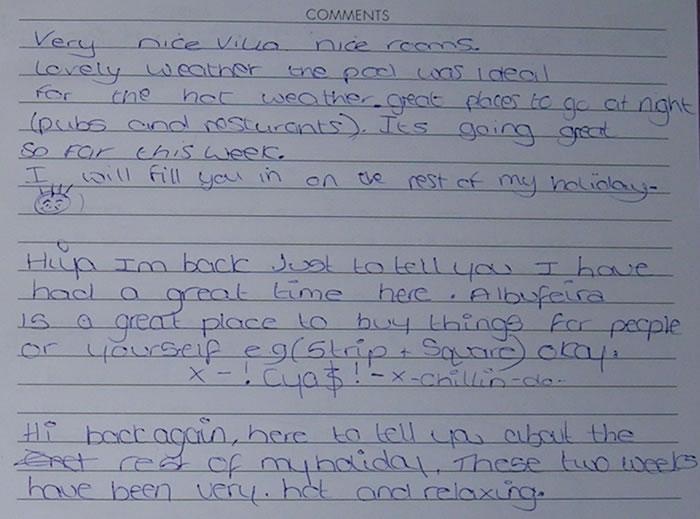 COMMENTS
Very nice villa nice rooms.
Lovely weather the pool was ideal
For the hot weather. great places to go at night
(pubs and resturants). It's going great
So Far this week.
I will fill you in on the rest of my holiday-
Hiya Im back Just to tell you I have
had a great time here. Albufeira
is a great place to buy things For people
or yourself eg (Strip + Square) okay.
x-! Cya$!-x-chillin-da-
Hi back again, here to tell you about the
rest of my holiday. These two weeks
have been very. hot and relaxing.